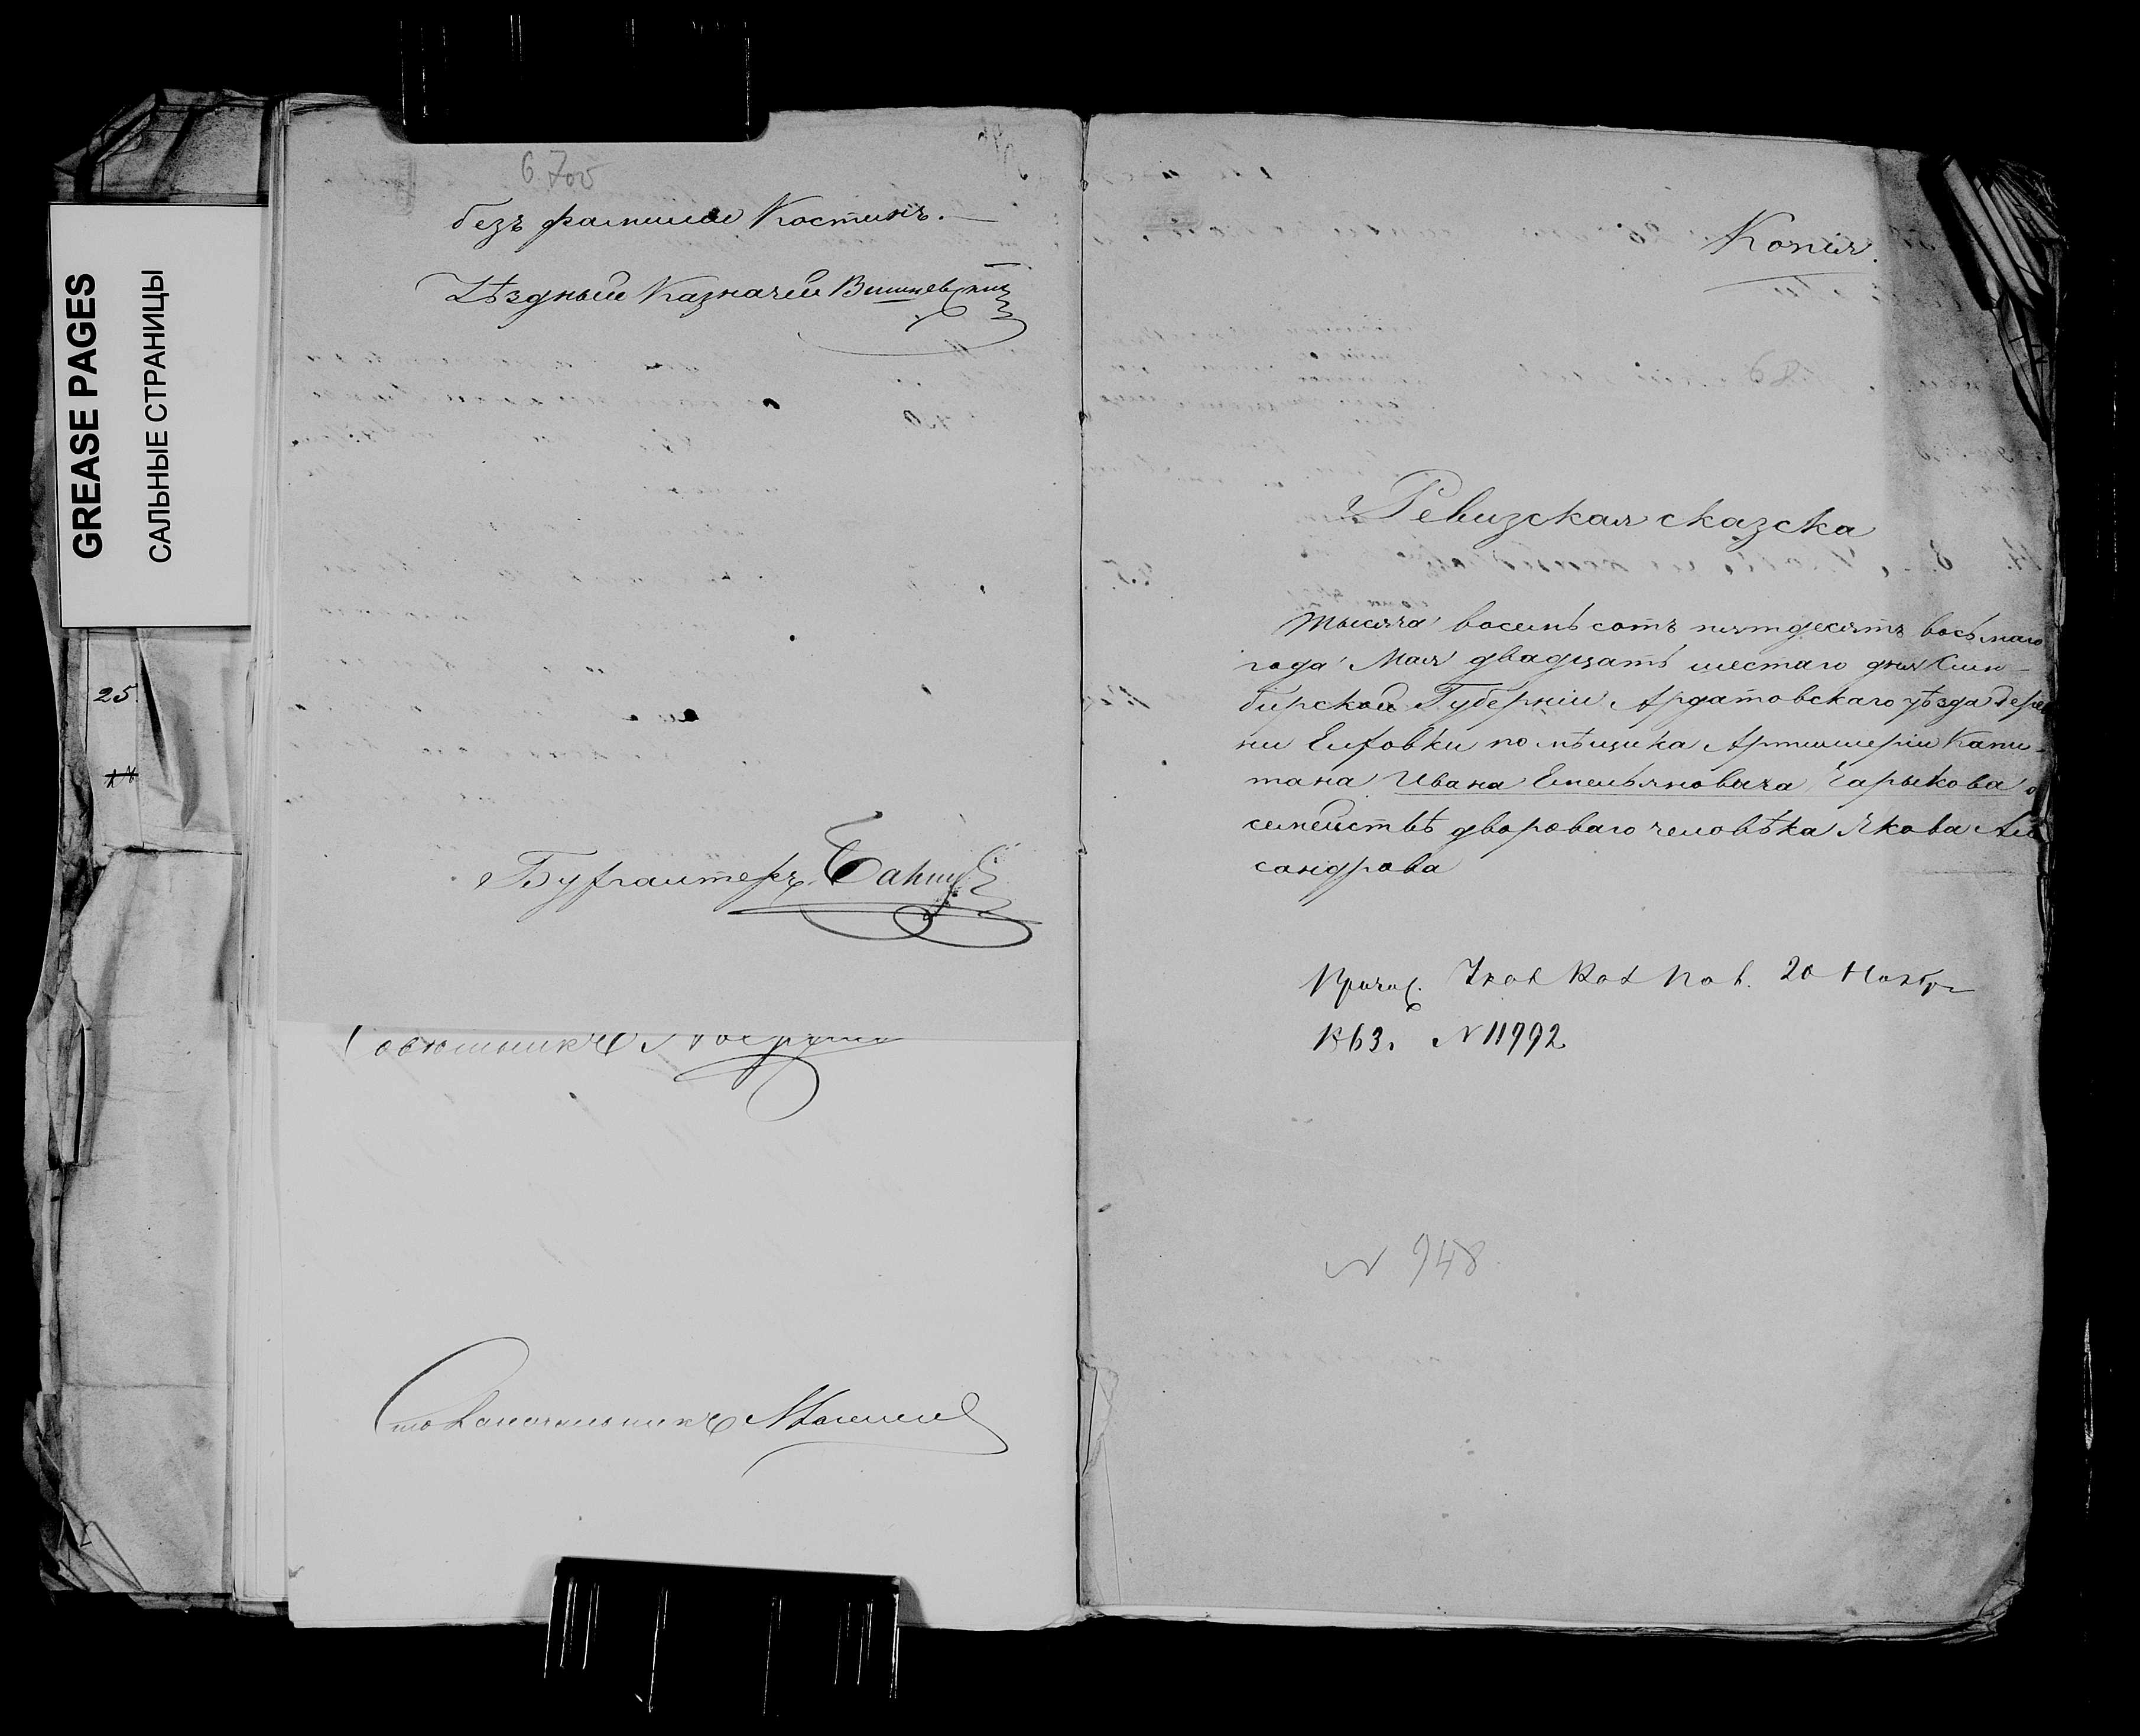 GREASE PAGES
САЛЬНЫЕ СТРАНИЦЫ
25
6700
безъ фамилии Костинъ.
Уѣздный Казначей Вишневскій
Бухгалтеръ
Столоначальникъ
Копія.
Ревизская сказска
Тысяча восемь сотъ пятдесятъ восьмаго
года Мая двадцать шестаго дня Сим-
бирской Губерніи Ардатовскаго уѣзда дерев
ни Елховки помѣщика Артиллеріи Капи-
тана Ивана Емельяновича Чарыкова о
семействѣ двороваго человѣка Якова Алек
сандрова
Причис. 20 Ноября
1863. N 11992
N 948